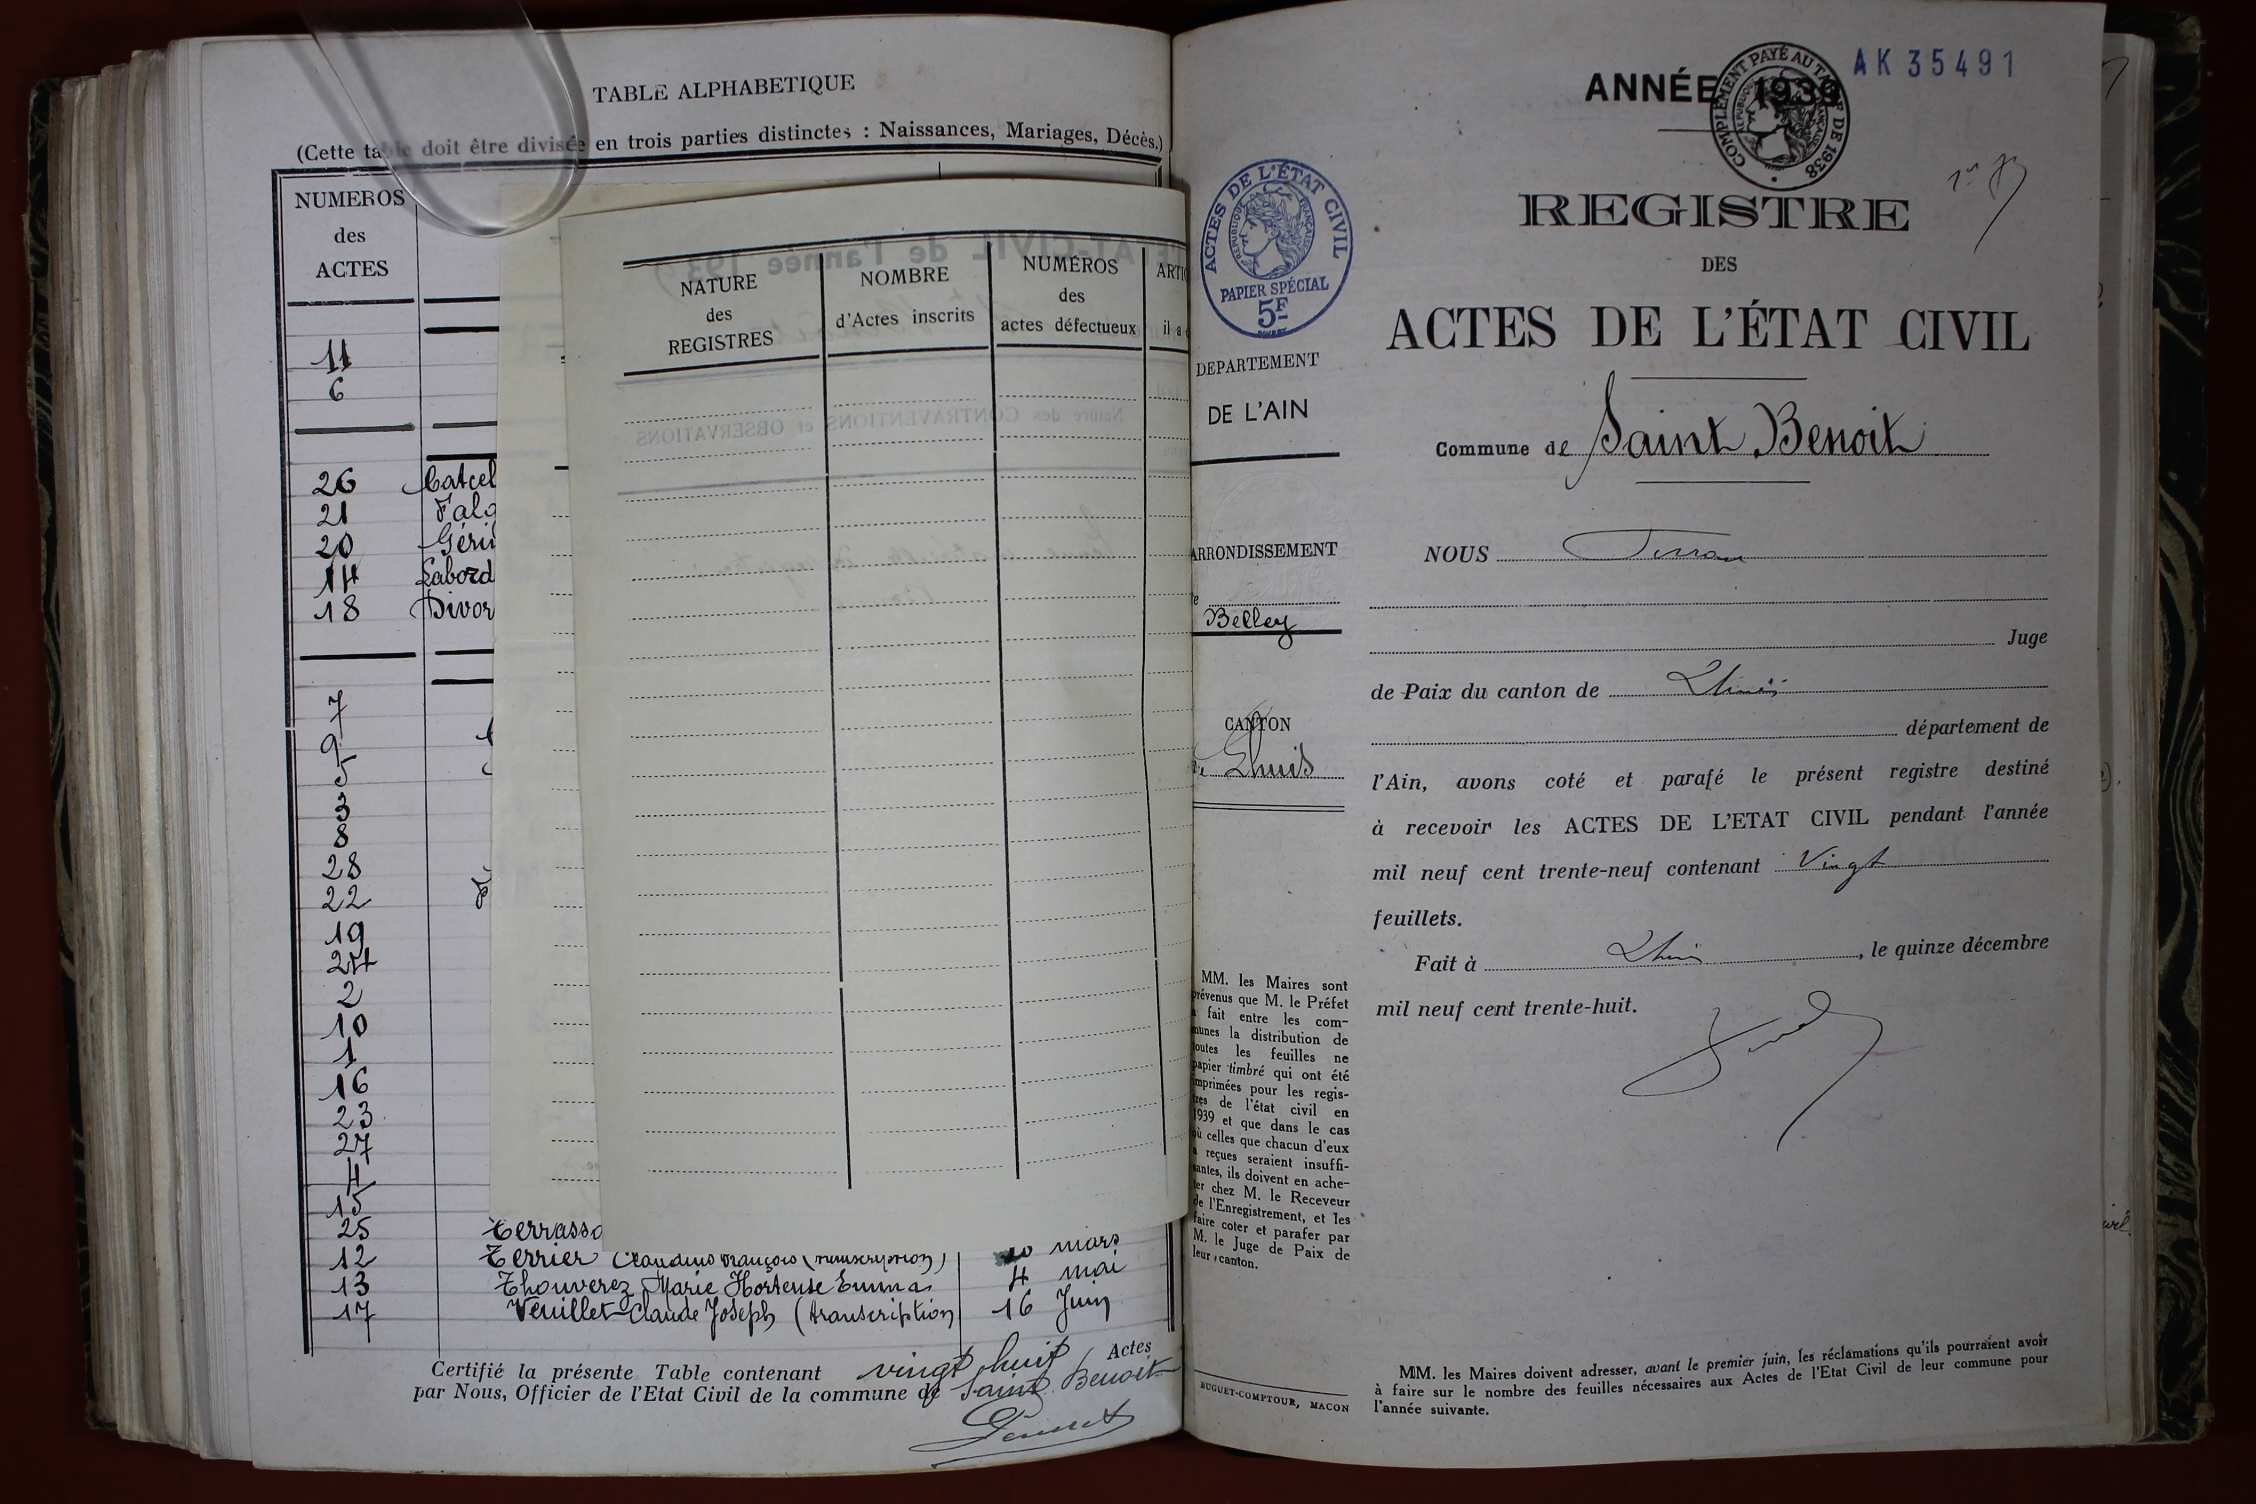 TABLE ALPHABETIQUE
(Cette table doit être divisée en trois parties distinctes : Naissances, Mariages, Décès.)
NUMEROS
des
ACTES
11
6
26 Catcel
21 Falq
20 Géri
14 Labord
18 Divor
7
9
5
3
8
28
22
19
24
2
10
1
16
23
27
4
15
25 Terrasso
12 Terrier Claudius François (transcription) mars
13 Thouverez Marie Hortense Emma 4 mai
17 Veuillet Claude Joseph (transcription 16 Juin
Certifié la présente Table contenant vingt huit Actes
par Nous, Officier de l'Etat Civil de la commune de Saint Benoit
NATURE
des
REGISTRES
NOMBRE
d'Actes inscrits
NUMÉROS
des
actes défectueux
ARTIC
il a
ACTES DE L'ÉTAT CIVIL
RÉPUBLIQUE FRANÇAISE
PAPIER SPÉCIAL
5F
DEPARTEMENT
DE L'AIN
ARRONDISSEMENT
Belley
CANTON
Lhuis
MM. les Maires sont
prévenus que M. le Préfet
a fait entre les com-
munes la distribution de
toutes les feuilles ne
papier timbré qui ont été
imprimées pour les regis-
tres de l'état civil en
1939 et que dans le cas
où celles que chacun d'eux
a reçues seraient insuffi-
santes, ils doivent en ache-
ter chez M. le Receveur
de l'Enregistrement, et les
faire coter et parafer par
M. le Juge de Paix de
leur canton.
BUGUET-COMPTOUR, MACON
AK 35491
ANNÉE 1939
COMPLÉMENT PAYÉ AU TARIF DE 1938
RÉPUBLIQUE FRANÇAISE
REGISTRE
DES
ACTES DE L'ÉTAT CIVIL
Commune de Saint Benoit
NOUS
Juge
de Paix du canton de Lhuis
département de
l'Ain, avons coté et parafé le présent registre destiné
à recevoir les ACTES DE L'ETAT CIVIL pendant l'année
mil neuf cent trente-neuf contenant Vingt
feuillets.
Fait à Lhuis, le quinze décembre
mil neuf cent trente-huit.
MM. les Maires doivent adresser, avant le premier juin, les réclamations qu'ils pourraient avoir
à faire sur le nombre des feuilles nécessaires aux Actes de l'Etat Civil de leur commune pour
l'année suivante.